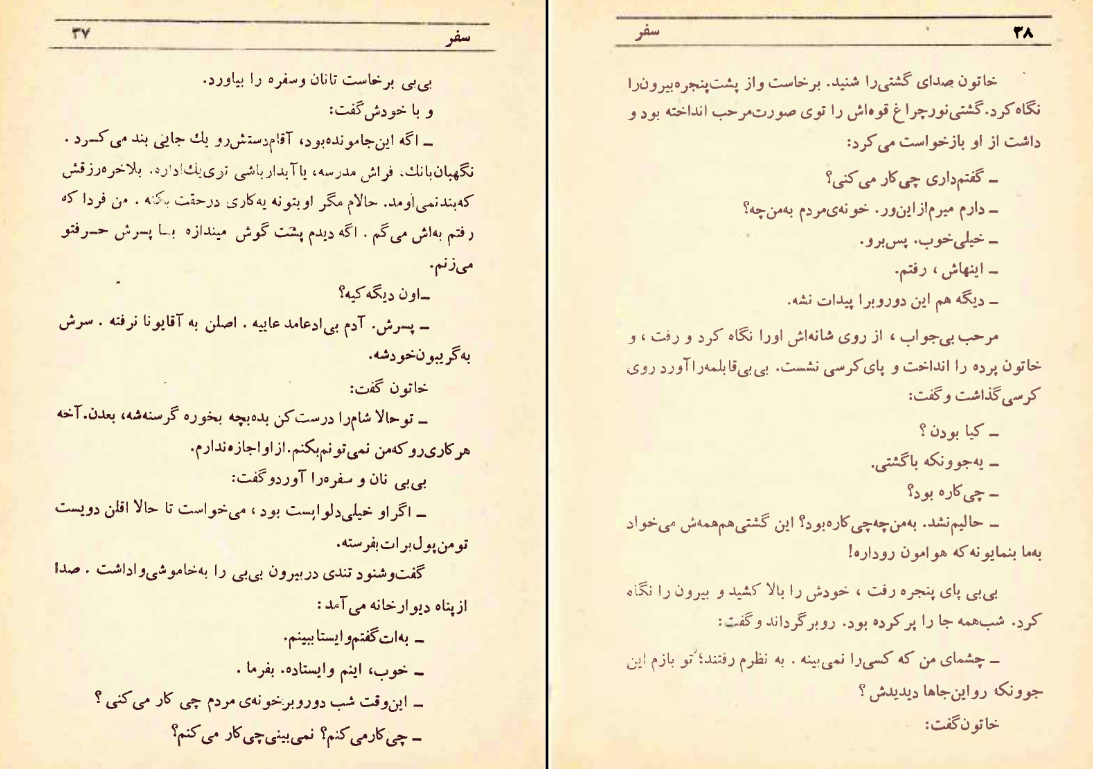 ۳۷ سفر
بی‌بی برخاست تانان وسفره را بیاورد.
و با خودش‌گفت:
ــ اگه این‌جامونده‌بود، آقام‌دستش‌رو یك جایی بند می‌کـرد .
نگهبان‌بانك، فراش مدرسه، یاآبدارباشی توی‌یك‌اداره. بلاخره‌رزقش
که‌بندنمی‌اومد. حالام مگر اوبتونه یه‌کاری درحقت بکنه . من فردا که
رفتم به‌اش می‌گم . اگه دیدم پشت گوش میندازه بـا پسرش حـرفتو
می‌زنم.
ــ اون دیگه‌کیه؟
ــ پسرش. آدم بی‌ادعامدعاییه . اصلن به آقایونا نرفته . سرش
به‌گریبون‌خودشه.
خاتون گفت:
ــ توحالا شام‌را درست‌کن بده‌بچه بخوره گرسنه‌شه، بعدن. آخه
هرکاری‌رو که‌من نمی‌تونم‌بکنم. ازاواجازه‌ندارم.
بی‌بی نان و سفره‌را آوردوگفت:
ــ اگراو خیلی‌دلواپست بود ، می‌خواست تا حالا اقلن دویست
تومن‌پول‌برات‌بفرسته.
گفت‌وشنود تندی دربیرون بی‌بی را به‌خاموشی‌واداشت . صدا
ازپناه دیوارخانه می‌آمد :
ــ به‌ات‌گفتم‌وایستاببینم.
ــ خوب، اینم وایستاده. بفرما .
ــ این‌وقت شب دوروبرخونه‌ی مردم چی کار می‌کنی ؟
ــ چی‌کارمی‌کنم؟ نمی‌بینی‌چی‌کار می‌کنم؟
سفر ۳۸
خاتون صدای گشتی‌را شنید. برخاست واز پشت‌پنجره‌بیرون‌را
نگاه‌کرد. گشتی‌نورچراغ قوه‌اش را توی صورت‌مرحب انداخته بود و
داشت از او بازخواست می‌کرد:
ــ گفتم‌داری چی‌کار می‌کنی؟
ــ دارم میرم‌ازاین‌ور. خونه‌ی‌مردم به‌من‌چه؟
ــ خیلی‌خوب. پس‌برو.
ــ اینهاش ، رفتم.
ــ دیگه هم این دوروبرا پیدات نشه.
مرحب بی‌جواب ، از روی شانه‌اش اورا نگاه کرد و رفت ، و
خاتون پرده را انداخت و پای‌کرسی نشست. بی‌بی‌قابلمه‌راآورد روی
کرسی‌گذاشت وگفت:
ــ کیا بودن ؟
ــ یه‌جوونکه باگشتی.
ــ چی‌کاره بود؟
ــ حالیم‌نشد. به‌من‌چه‌چی‌کاره‌بود؟ این گشتی‌هم‌همه‌ش می‌خواد
به‌ما بنمایونه‌که هوامون روداره!
بی‌بی پای پنجره رفت ، خودش را بالا کشید و بیرون را نگاه
کرد. شب‌همه جا را پرکرده بود. روبرگرداند وگفت:
ــ چشمای من که کسی‌را نمی‌بینه . به نظرم رفتند؛ تو بازم این
جوونکه رواین‌جاها دیدیدش ؟
خاتون‌گفت: